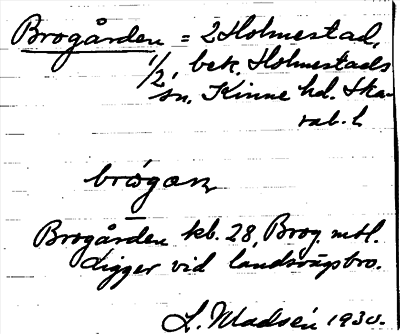 Brogården = 2 Holmestad,
1/2, bek. Holmestads
sn, Kinne hd. Ska-
rab. l.
Brogården kb. 28, Brog. mtl.
Ligger vid landsvägsbro.
L. Madsén 1930.